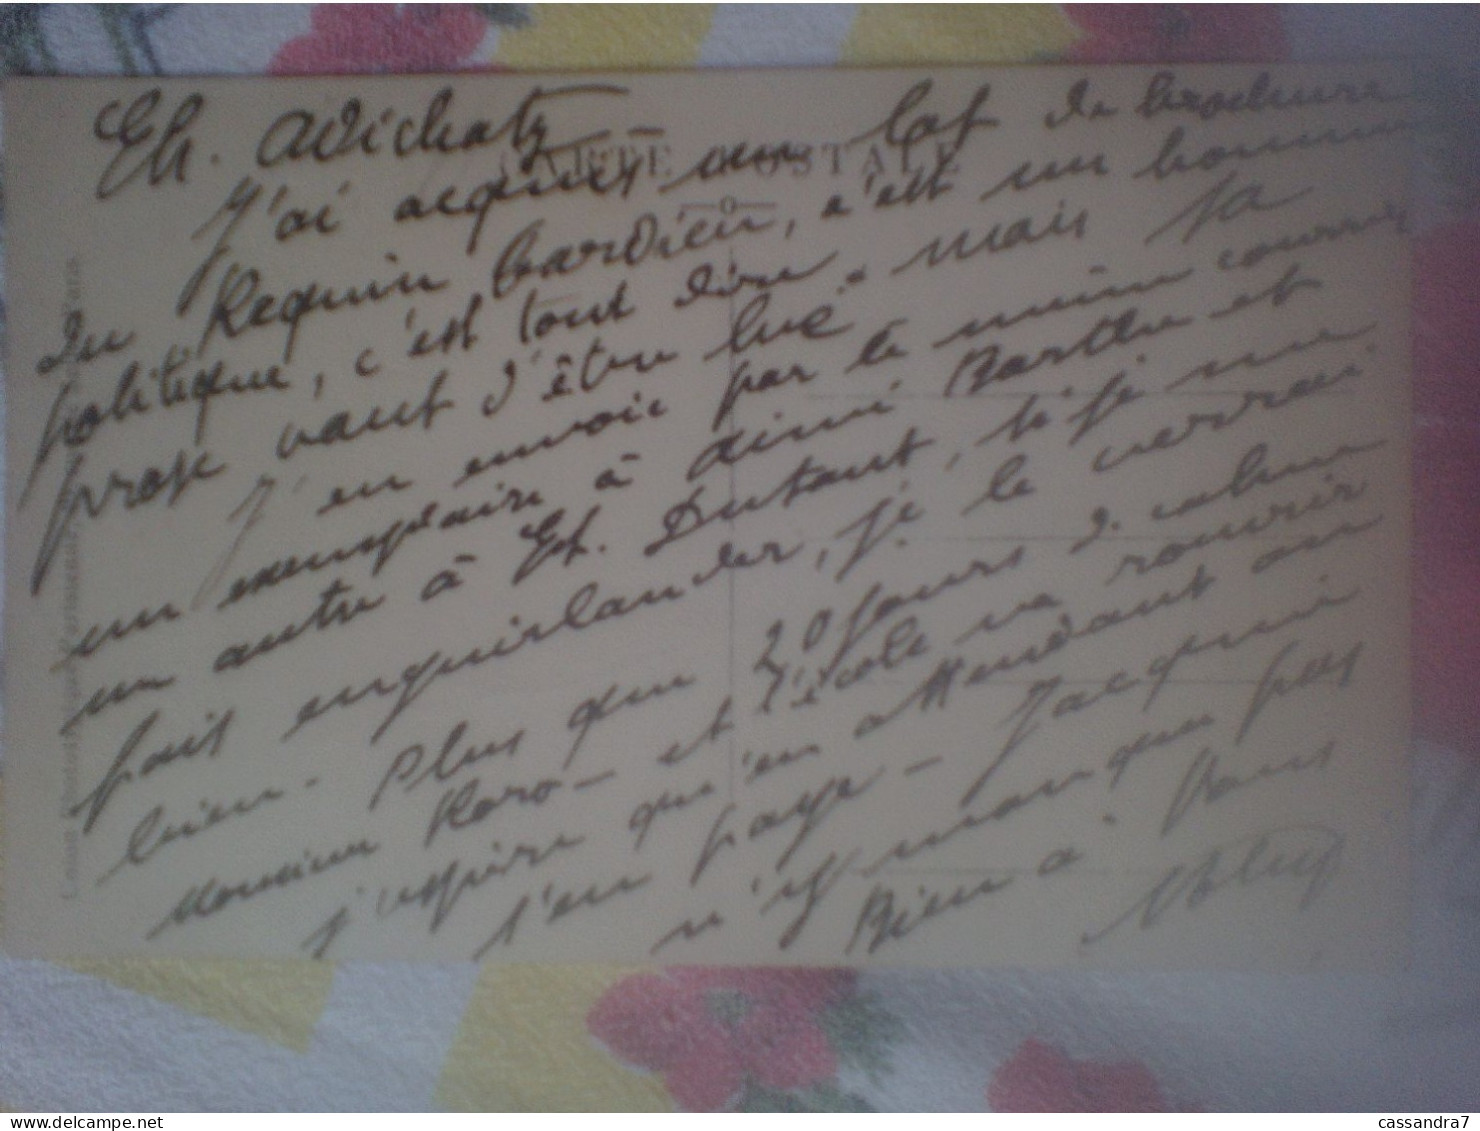 Eh. Adichatz
CARTE POSTALE
J'ai acquis un lot de brochure
du Requin bardieu, c'est un homme
politique, c'est tout dire. mais sa
prose vaut d'être lue
J'en envoie par le même courrier
un exemplaire à Aimé Barthe et
un autre à Et. Dutaut, si je me
fais enguirlander, je le verrai
bien - Plus que 20 jours de calme
Monsieur Haro - et l'école va rouvrir
j'espère qu'en attendant on
s'en paye - Jacquin
n'y manque pas
Bien à Vous
cassandra7